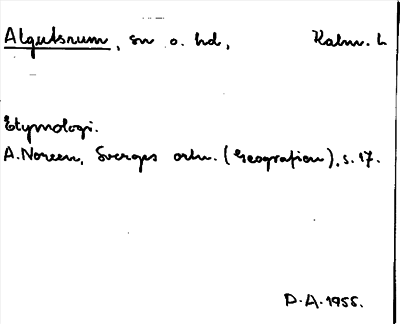 Algutsrum, sn o. hd, Kalm. L
Etymologi.
A. Noreen, Sverges ortn. (Geografien), s. 17.
D.A. 1955.